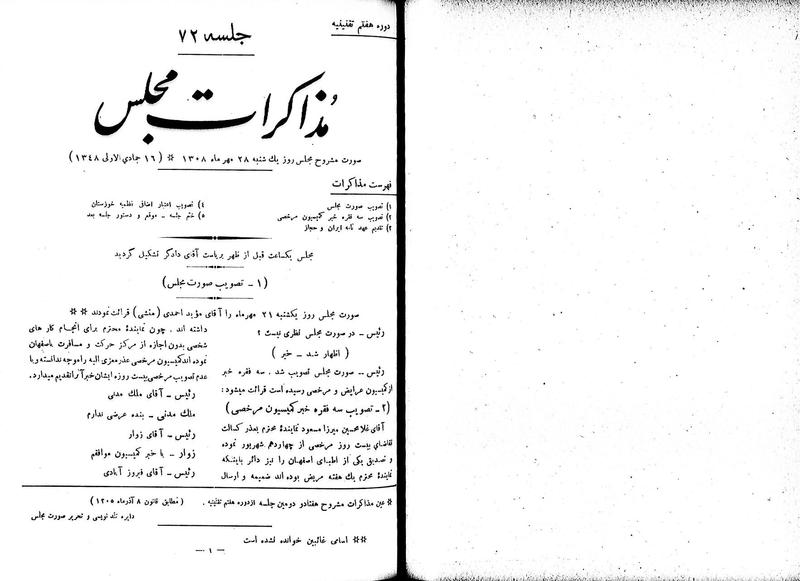 دوره هفتم تقنینیه
جلسه ۷۲
مذاکرات مجلس
صورت مشروح مجلس روز یك شنبه ۲۸ مهر ماه ۱۳۰۸ * (۱۶ جمادی الاولی ۱۳۴۸)
فهرست مذاکرات
۱) تصویب صورت مجلس
۲) تصویب سه فقره خبر کمیسیون مرخصی
۳) تقدیم عهد نامه ایران و حجاز
۴) تصویب اعتبار اضافی نظمیه خوزستان
۵) ختم جلسه ـ موقع و دستور جلسه بعد
مجلس یکساعت قبل از ظهر بریاست آقای دادگر تشکیل گردید
(۱ ـ تصویب صورت مجلس)
صورت مجلس روز یکشنبه ۲۱ مهرماه را آقای مؤید احمدی (منشی) قرائت نمودند **
رئیس ـ در صورت مجلس نظری نیست ؟
( اظهار شد ـ خیر )
رئیس ـ صورت مجلس تصویب شد . سه فقره خبر
از کمیسیون عرایض و مرخصی رسیده است قرائت میشود :
(۲ـ تصویب سه فقره خبر کمیسیون مرخصی)
آقای غلامحسین میرزا مسعود نمایندۀ محترم بعذر کسالت
تقاضای بیست روز مرخصی از چهاردهم شهریور نموده
و تصدیق یکی از اطبای اصفهان را نیز دائر باینکه
نمایندۀ محترم یك هفته مریض بوده اند ضمیمه و ارسال
داشته اند . چون نمایندۀ محترم برای انجام کار های
شخصی بدون اجازه از مرکز حرکت و مسافرت باصفهان
نموده اند کمیسیون مرخصی عذر معزی الیه را موجه ندانسته و با
عدم تصویب مرخصی بیست روزه ایشان خبر آنرا تقدیم میدارد.
رئیس ـ آقای ملك مدنی
ملك مدنی ـ بنده عرضی ندارم
رئیس ـ آقای زوار
زوار ـ با خبر کمیسیون موافقم
رئیس ـ آقای فیروز آبادی
* عین مذاکرات مشروح هفتادو دومین جلسه از دوره هفتم تقنینیه . (مطابق قانون ۸ آذرماه ۱۳۰۵)
دایره تند نویسی و تحریر صورت مجلس
** اسامی غائبین خوانده نشده است
ـ ۱ ـ